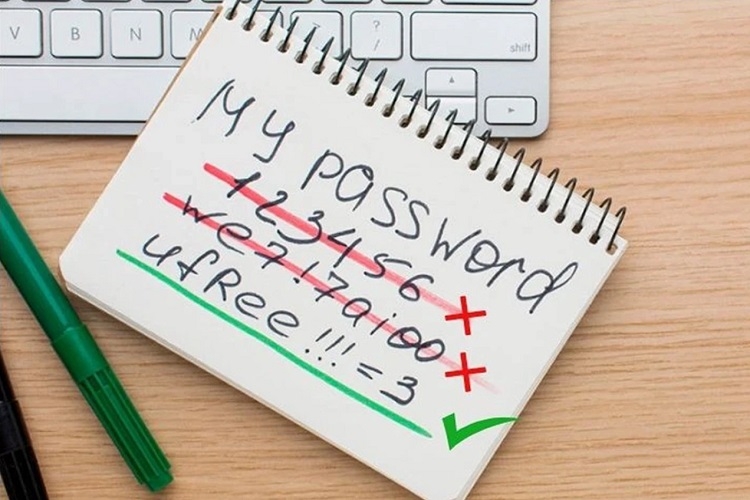 V B N M ?
/ shift
My password
123456
we7!7aioo
ufRee!!!=3